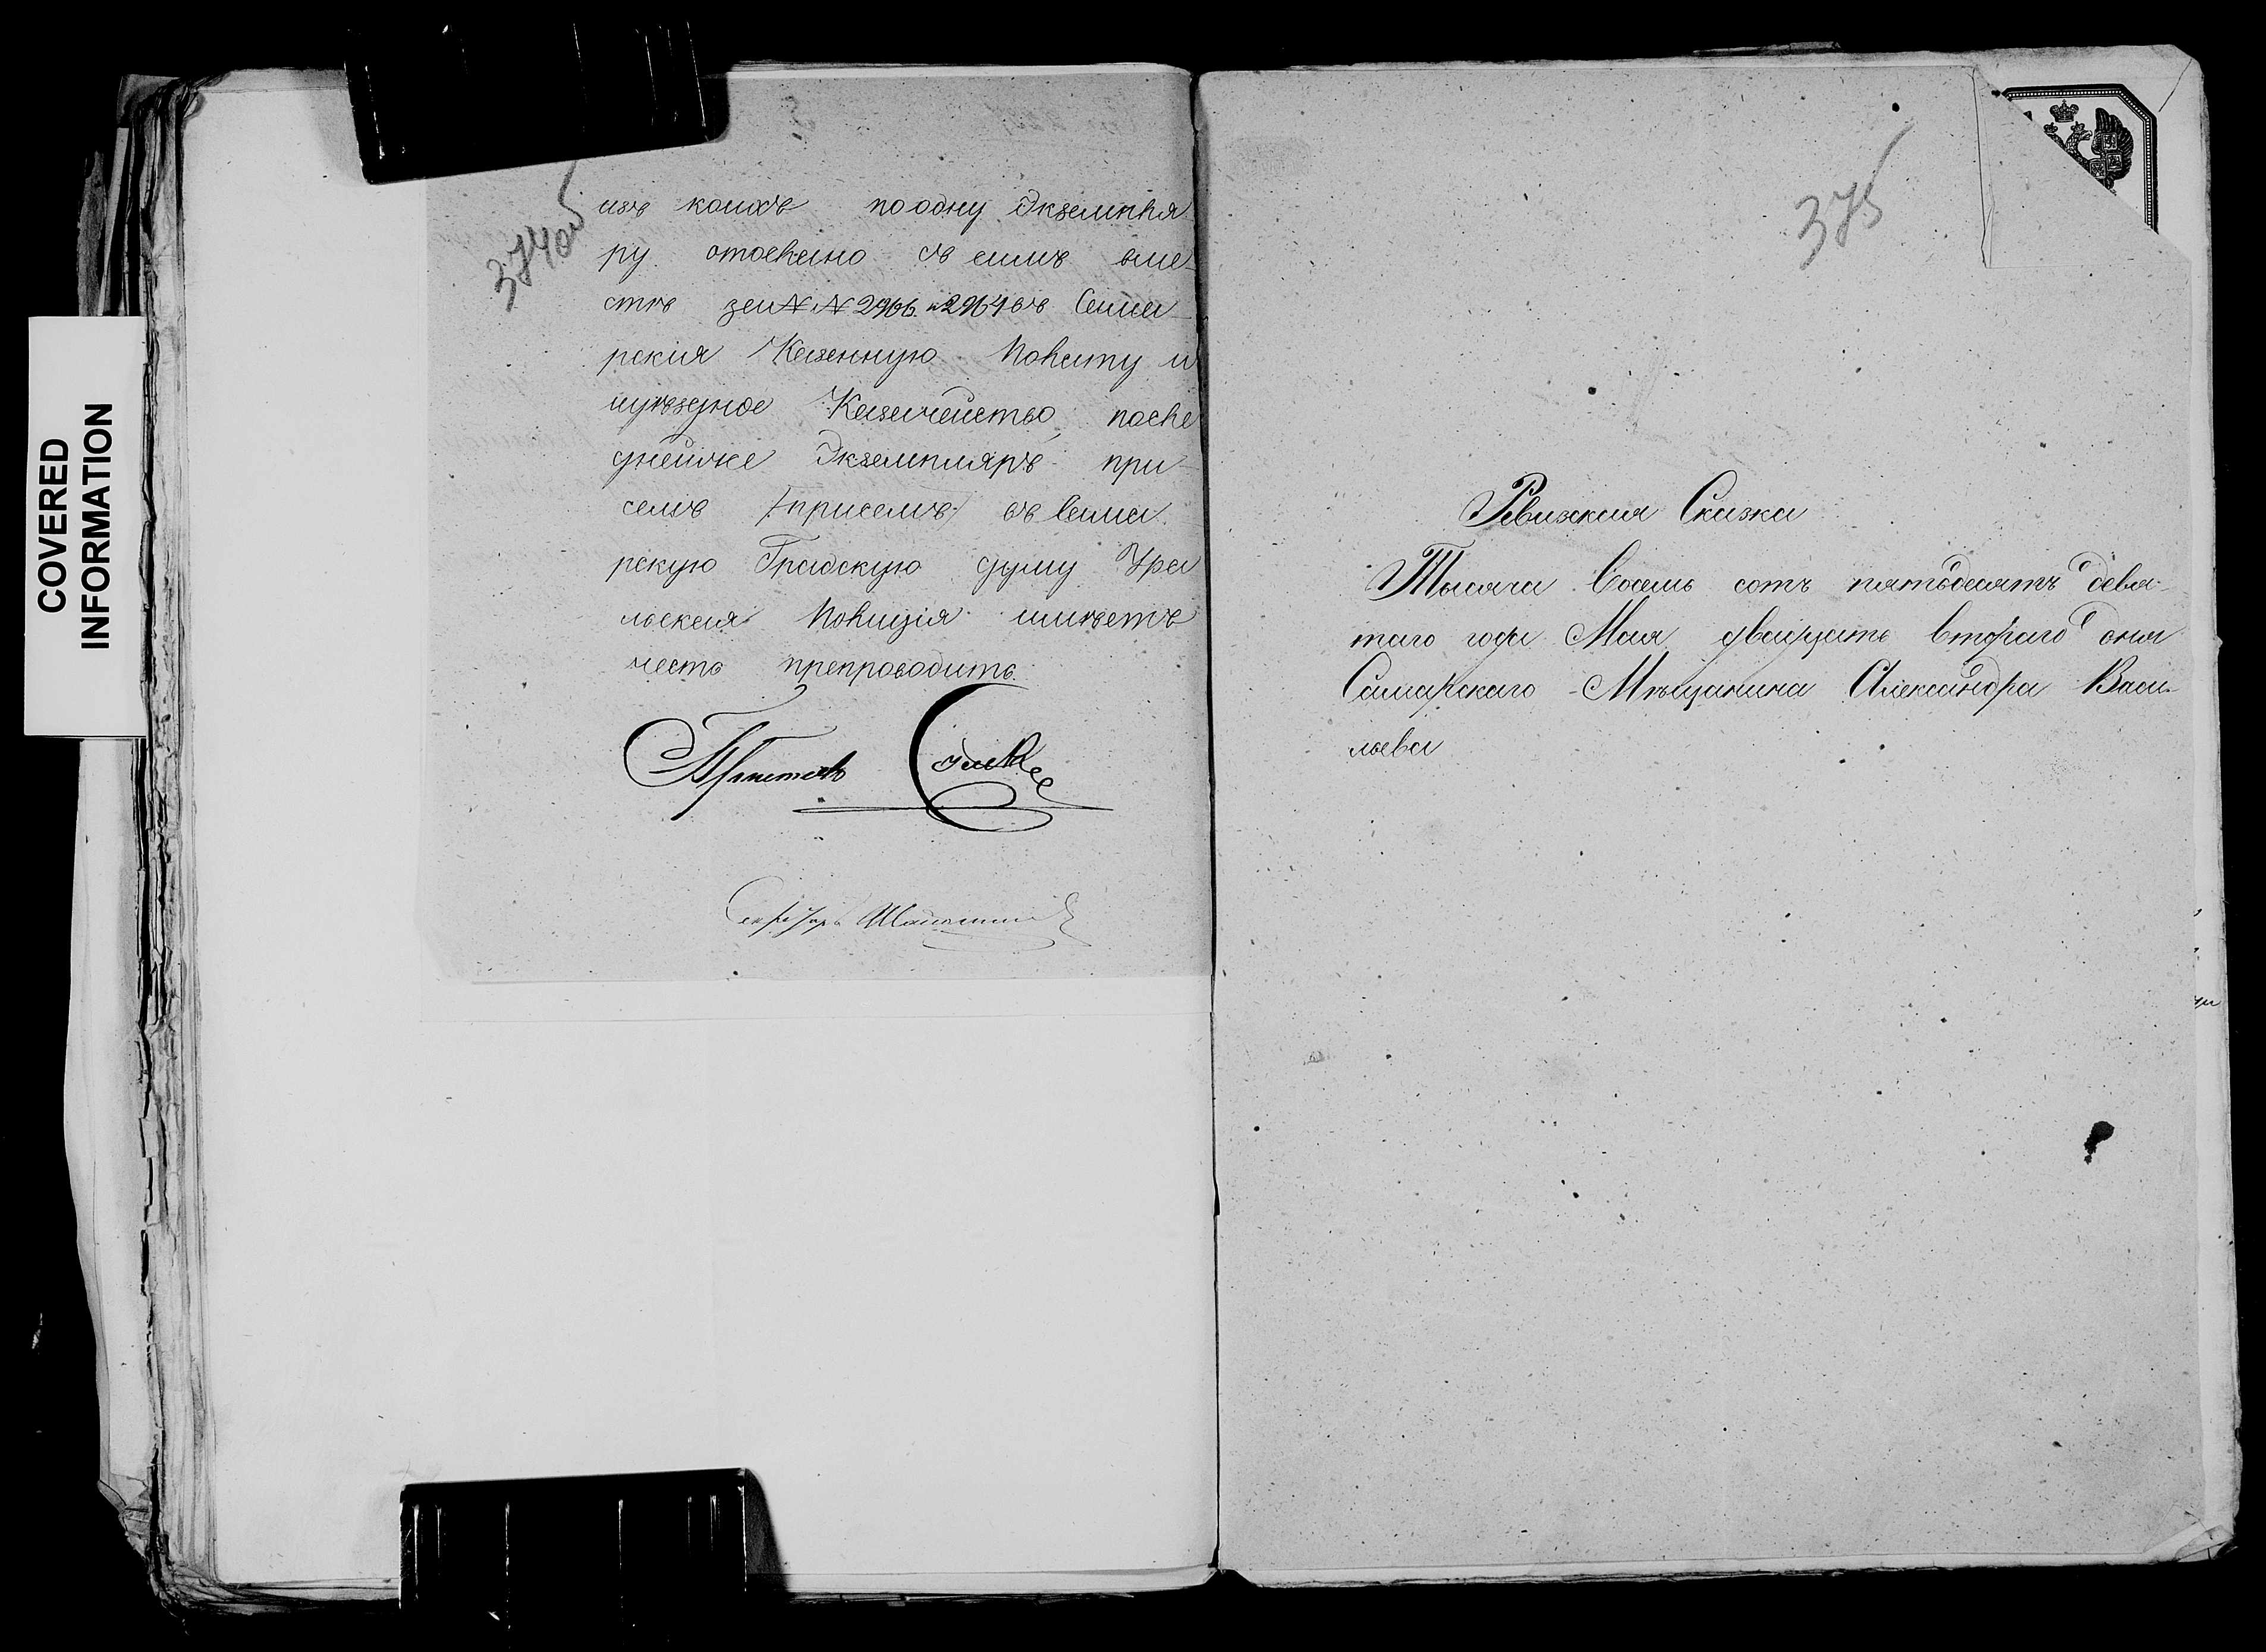 COVERED
INFORMATION
374об
изъ коихъ по одну Экземпля
ру отослано съ симъ вме-
стѣ за №№ 2966 и 2967 въ Сама
рскія Казенную Палату и
иуѣздное Казначейство, после
днейже Экземпляръ при-
семъ /присемъ/ въ Сама
рскую Градскую думу Ура
льская Полиція имѣетъ
честь препроводить.
Приставъ
Секретарь
375
Ревизкая Сказка
Тысяча Восемь сотъ пятьдесятъ девя-
таго года Мая двадцать втораго дня
Самарскаго Мѣщанина Александра Васи-
льева